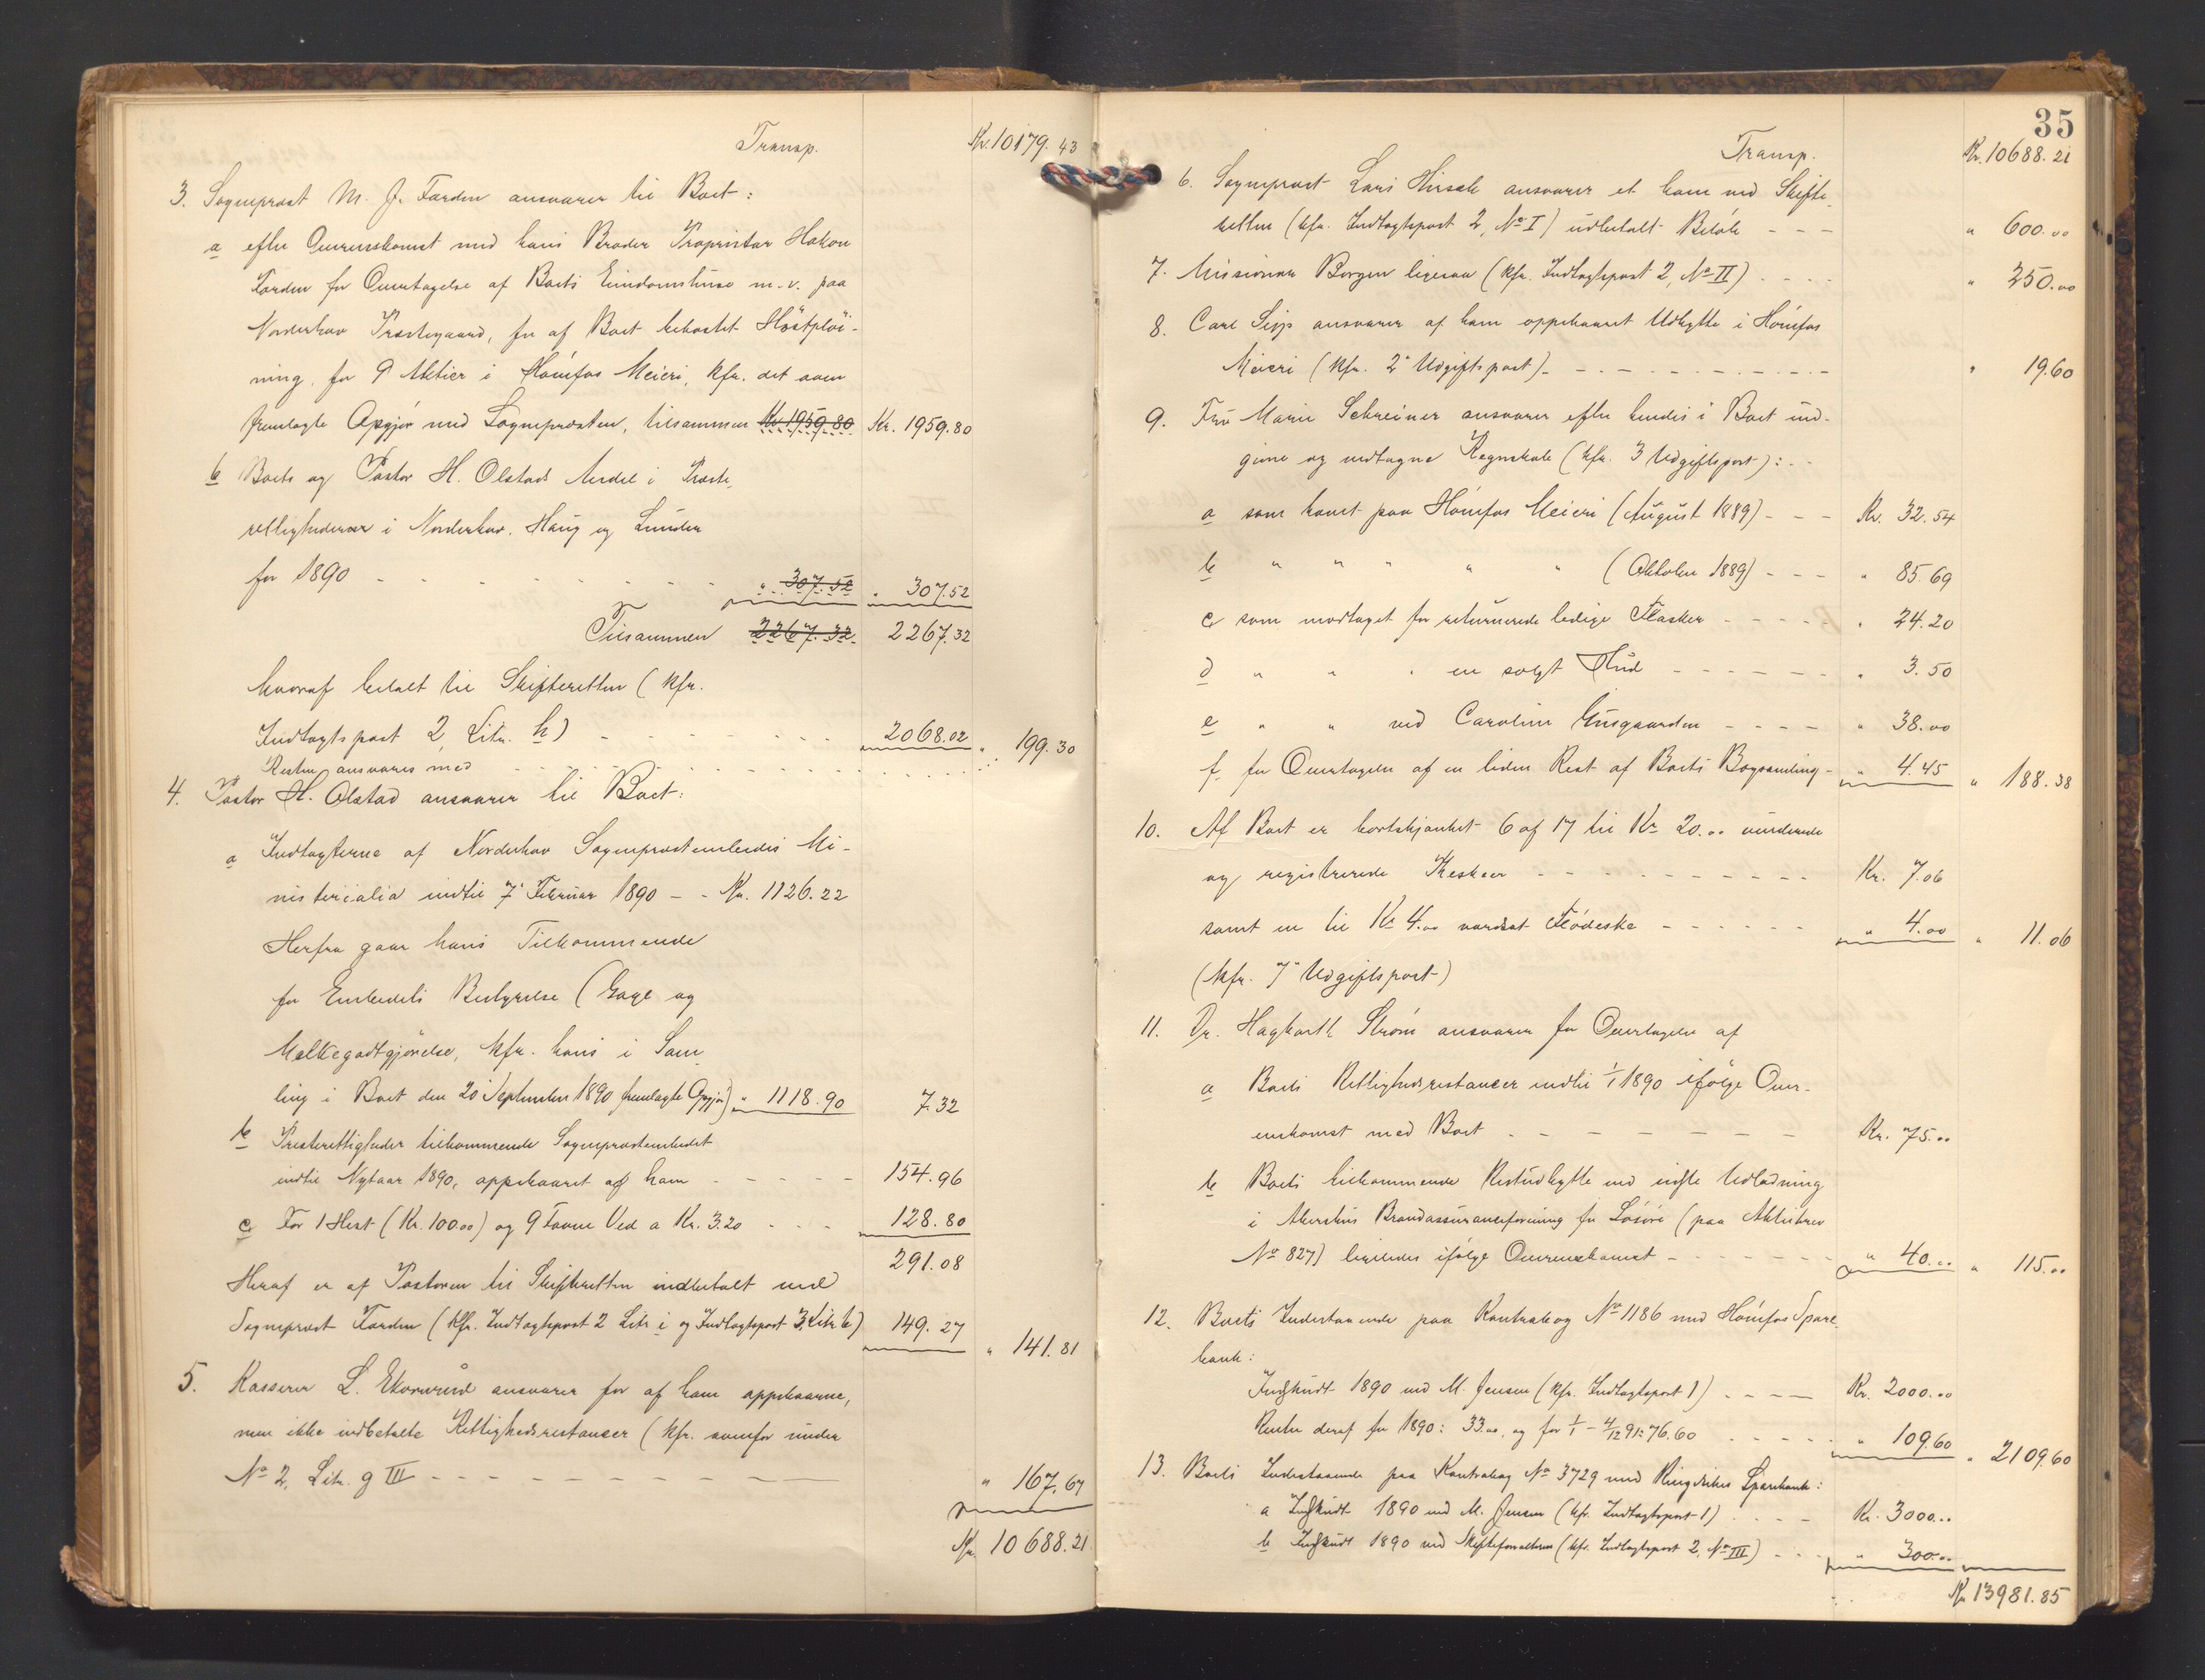 Transp. Kr. 10179.43
3. Sogneprest M. J. Færden ansvarer til Boet:
a efter Overenskomst med hans Broder Proprietær Hakon
Færden for Overtagelse af Boets Eiendomshuse m.v. paa
Norderhov Prestegaard, for af Boet bekostet Höstplöi-
ning, for 9 Aktier i Hönefos Meieri, kfr. det som
fremlagte Opgjör med Sogneprosten, tilsammen Kr 1959.80 Kr. 1959.80
b Boets og Pastor H. Olstads Andel i Preste-
rettighederne i Norderhov, Haug og Lunder
for 1890 - - - " 307.52 " 307.52
Tilsammen 2267.32 2267.32
hvoraf betalt til Skifteretten (kfr.
Indtægtspost 2, Litr. h) - - - 2068.02
Resten ansvares med - - - " 199.30
4. Pastor H. Olstad ansvarer til Boet:
a Indtægterne af Norderhov Sogneprestembedes Mi-
nisterialia indtil 7' Februar 1890 - - Kr. 1126.22
Herfra gaar hans Tilkommende
for Embedets Bestyrelse (Gage og
Melkegodtgjörelse, kfr. hans i Sam-
ling i Boet den 20 September 1890 fremlagte Opgjör) " 1118.90 7.32
b Presterettigheder tilkommende Sogneprestembedet
indtil Nytaar 1890, oppebaaret af ham - - - 154.96
c For 1 Hest (Kr. 100.00) og 9 Favne Ved a Kr. 3.20 - - - 128.80
291.08
Heraf er af Pastoren til Skifteretten indbetalt med
Sogneprest Færden (kfr. Indtægtspost 2 Litr i og Indtægtspost 3, Litr b) 149.27
" 141.81
5. Kasserer L. Ekornrud ansvarer for af ham oppebaarne,
men ikke indbetalte Rettighedsrestancer (kfr. ovenfor under
No 2, Litr. g III - - - " 167.67
Kr. 10688.21
35
Transp. Kr. 10688.21
6. Sogneprest Lars Hirsch ansvarer et ham ved Skifte-
retten (kfr. Indtægtspost 2, No I) udbetalt Beløb - - - " 600.00
7. Missionær Borgen ligesaa (kfr. Indtægtspost 2, No II) . . . . " 250.00
8. Carl Sejp ansvarer af ham oppebaaret Udbytte i Hönefos
Meieri (kfr. 2' Udgiftspost) - - - " 19.60
9. Fru Marie Schreiner ansvarer efter hendes i Boet ind-
givne og vedtagne Regnskab (kfr. 3 Udgiftspost): - -
a som hævet paa Hönefos Meieri (August 1889) - - - Kr. 32.54
b " " " " " (Oktober 1889) - - - " 85.69
c som modtaget for returnerede ledige Flasker - - - " 24.20
d " " " en solgt Hud - - - " 3.50
e " " ved Caroline Husgaarden - - - " 38.00
f. for Overtagelse af en liden Rest af Boets Bogsamling - " 4.45 " 188.38
10. Af Boet er bortskjænket 6 af 17 til Kr 20.00 vurderede
og registrerede Keskeer - - - Kr. 7.06
samt en til Kr 4.00 værdsat Flödeske - - - " 4.00 " 11.06
(kfr. 7' Udgiftspost)
11. Dr. Hagbarth Strøm ansvarer for Overtagelse af
a Boets Rettighedsrestancer indtil 1/1 1890 ifölge Over-
enskomst med Boet - - - Kr. 75.00
b Boets tilkommende Restudbytte ved sidste Udlodning
i Akershus Brandassuranceforening for Løsøre (paa Aktiebrev
No 827) ligeledes ifölge Overenskomst - - - " 40.00 " 115.00
12. Boets Indestaaende paa Kontrabog No 1186 med Hönefos Spare-
bank:
Indskudt 1890 ved M. Jensen (kfr. Indtægtspost 1) - - - Kr. 2000.00
Renter deraf for 1890: 33.00, og for 1/1 - 4/12 91: 76.60 - - - " 109.60 " 2109.60
13. Boets Indestaaende paa Kontrabog No 3729 med Ringerikes Sparebank:
a Indskudt 1890 ved M. Jensen (kfr. Indtægtspost 1) . . . . Kr. 3000.00
b Indskudt 1890 ved Skifteforvalteren (kfr. Indtægtspost 2, No III) - - - " 300.00
Kr. 13981.85